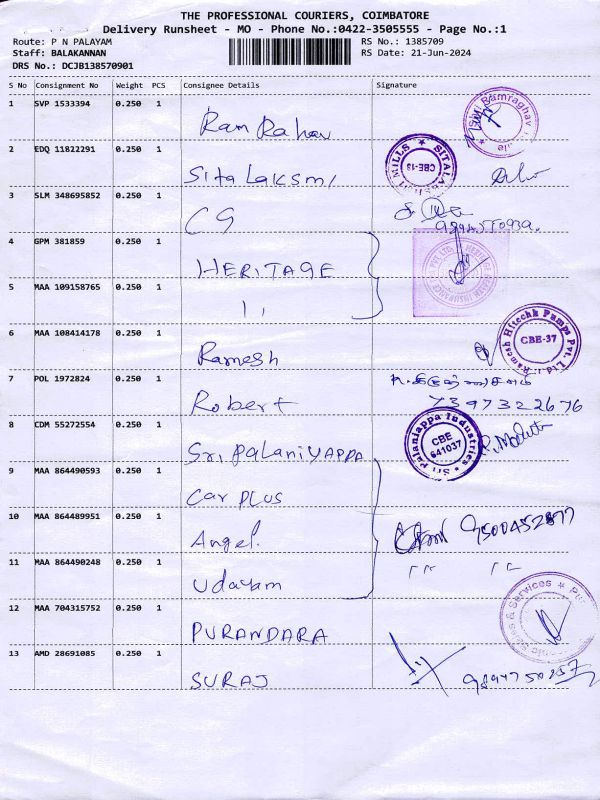 THE PROFESSIONAL COURIERS, COIMBATORE
Delivery Runsheet - MO - Phone No.:0422-3505555 - Page No.:1
Route: P N PALAYAM RS No.: 1385709
Staff: BALAKANNAN RS Date: 21-Jun-2024
DRS No.: DCJB138570901
S No Consignment No Weight PCS Consignee Details Signature
1 SVP 1533394 0.250 1
Ram Rahav
2 EDQ 11822291 0.250 1
Sita Laksmi
MILLS ★ SITALAKSHMI CBE-18
3 SLM 348695852 0.250 1
CG
4 GPM 381859 0.250 1
HERITAGE
5 MAA 109158765 0.250 1
11
6 MAA 108414178 0.250 1
Ramesh
Ramesh Hitechk Pumps Pvt. Ltd CBE-37
7 POL 1972824 0.250 1
Robert
7397322676
8 CDM 55272554 0.250 1
Sri Palaniyappa
Sri Palaniappa Industries CBE 641037
9 MAA 864490593 0.250 1
Car Plus
10 MAA 864489951 0.250 1
Angel.
9500452877
11 MAA 864490248 0.250 1
Udayam
12 MAA 704315752 0.250 1
PURANDARA
Sales & Services
13 AMD 28691085 0.250 1
SURAJ